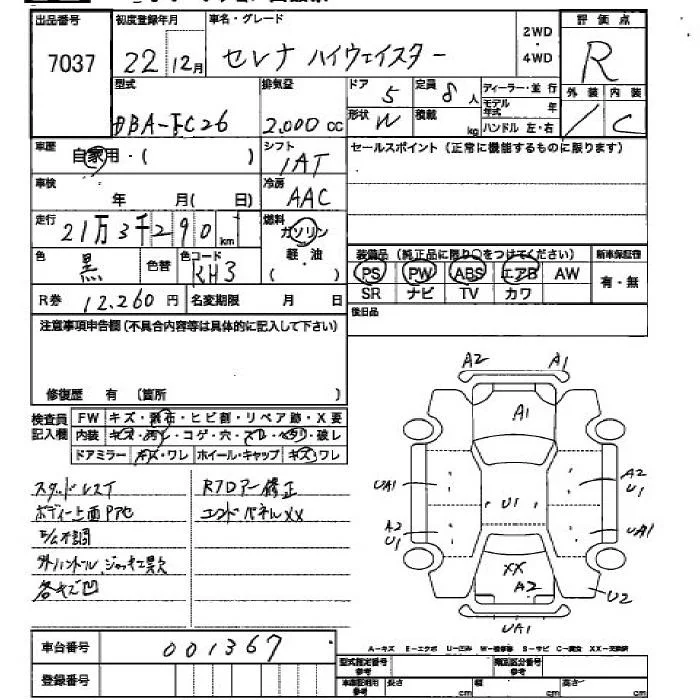 出品番号 初度登録年月 車名・グレード 2WD ・ 4WD 評価点
7037 22 12月 セレナ ハイウェイスター R
型式 排気量 ドア 5 定員 8人 ディーラー・並行 外装 内装
DBA-FC26 2.000cc 形状 W 積載 kg モデル年式 年 ハンドル 左・右 / C
車歴 自家用・( ) シフト 1AT セールスポイント(正常に機能するものに限ります)
車検 年 月( 日) 冷房 AAC
走行 21万3千290km 燃料 ガソリン 軽・油 ( )
色 黒 色替 色コード KH3
装備品(純正品に限り○をつけてください) 新車保証書
PS PW ABS エアB AW 有・無
SR ナビ TV カワ
R券 12.260円 名変期限 月 日 後日品
注意事項申告欄(不具合内容等は具体的に記入して下さい)
修復歴 有 (箇所 )
検査員記入欄 FW キズ・飛石・ヒビ割・リペア跡・X要
内装 キズ・汚レ・コゲ・穴・スレ・ヘタリ・破レ
ドアミラー キズ・ワレ ホイール・キャップ キズ・ワレ
スタッドレスT Rフロアー修正
ボディ上面PアセエンドパネルXX
E/G不調
外ハンドル ジャッキ欠
各キズ凹
A2 A1
A1
UA1 U1 A2 U1
A2 U1 UA1
XX A2 U2
UA1
A-キズ E-エクボ U-凹み W-補修跡 S-サビ C-腐食 XX-交換済
車台番号 001367
登録番号
型式指定番号 参考 類別区分番号 参考
車庫証明用 参考 長さ cm 幅 cm 高さ cm